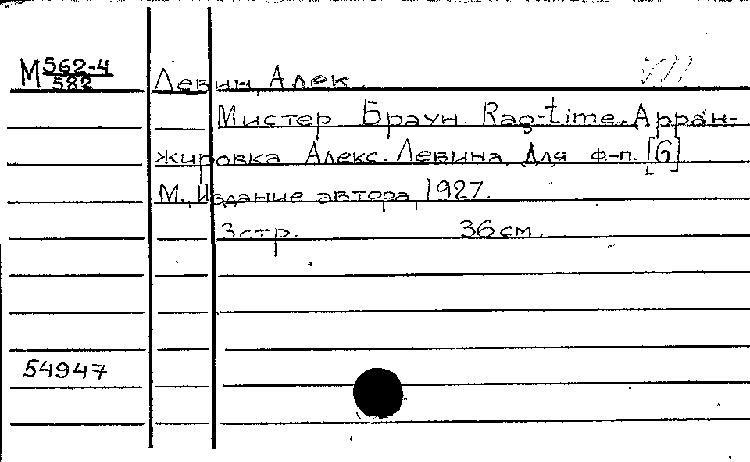 М 562-4
582
Левин, Алек.
VII
Мистер Браун. Rag-time. Арран-
жировка Алекс. Левина. Для ф-п. [G]
М., Издание автора, 1927.
3 стр. 36 см.
54947